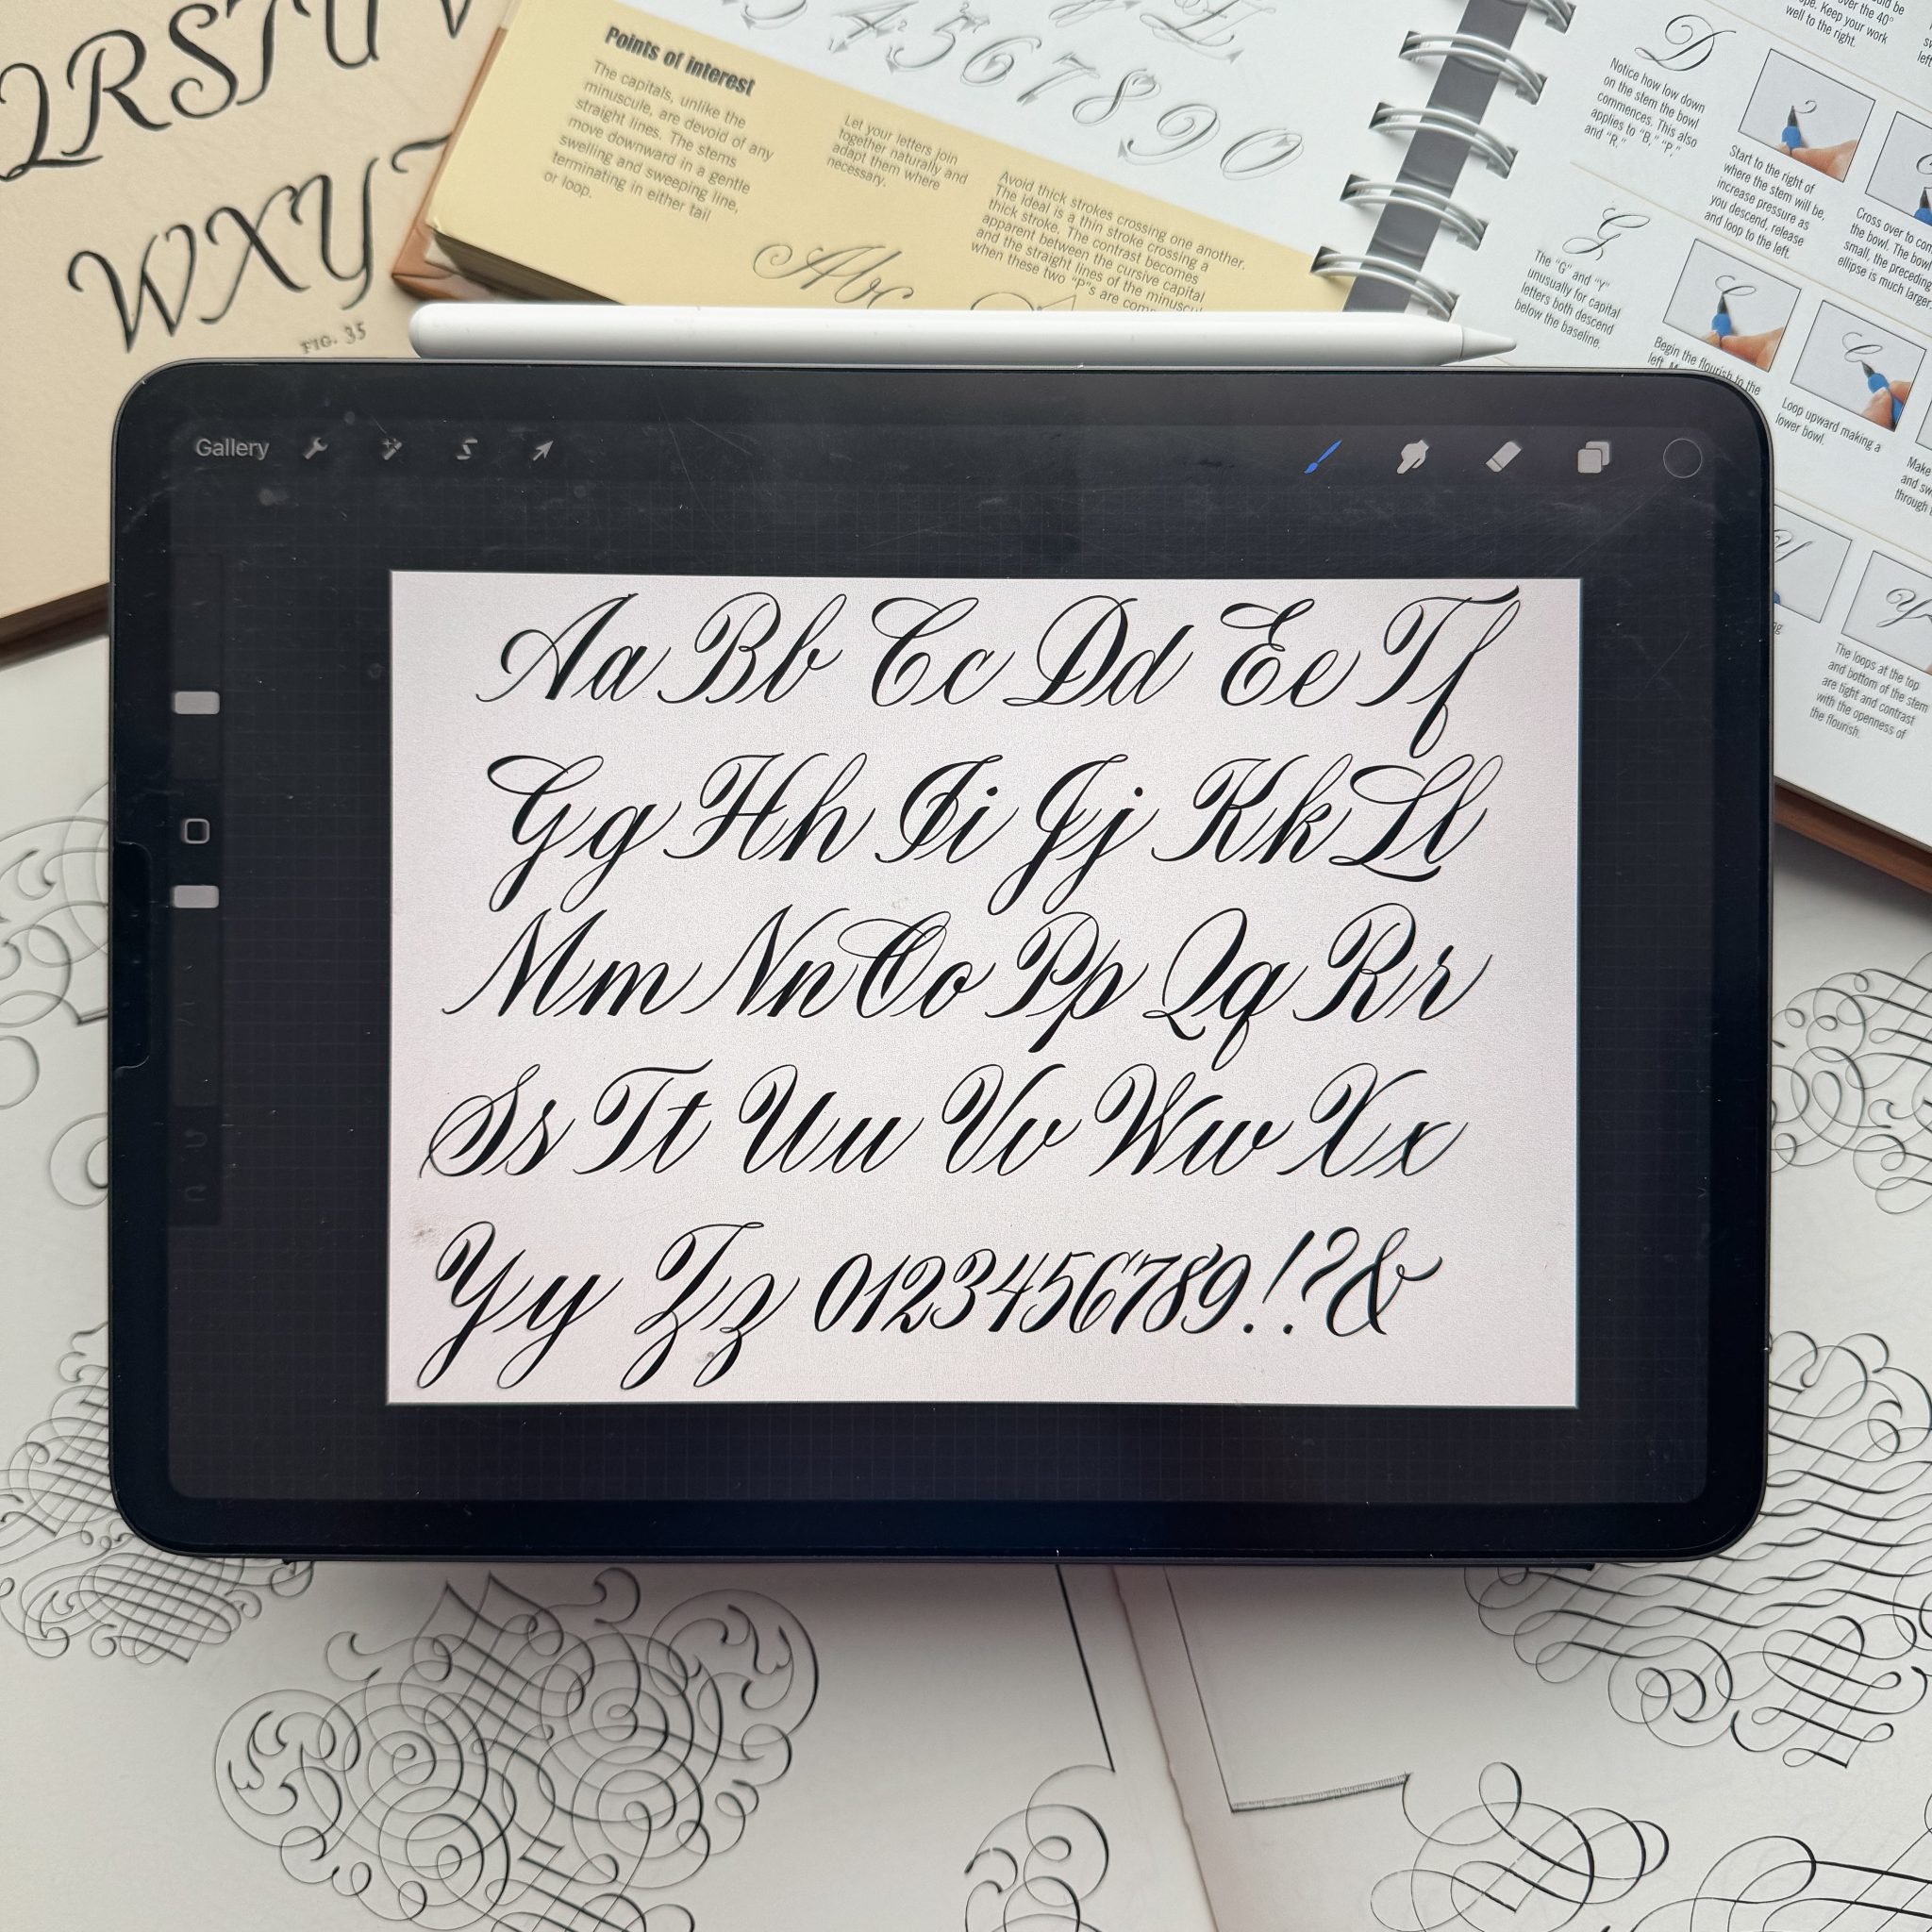 QRSTUV
WXYZ
FIG. 35
4 5 6 7 8 9 0
Points of interest
The capitals, unlike the
minuscule, are devoid of any
straight lines. The stems
move downward in a gentle
swelling and sweeping line,
terminating in either tail
or loop.
Let your letters join
together naturally and
adapt them where
necessary.
Avoid thick strokes crossing one another.
The ideal is a thin stroke crossing a
thick stroke. The contrast becomes
apparent between the cursive capital
and the straight lines of the
when these two "P"s are
Abc
over the 40°
Keep your work
well to the right.
D
Notice how low down
on the stem the bowl
commences. This also
applies to "B," "P,"
and "R."
Start to the right of
where the stem will be,
increase pressure as
you descend, release
and loop to the left.
Cross over to
the bowl. The bowl
small, the preceding
ellipse is much larger.
G
The "G" and "Y"
unusually for capital
letters both descend
below the baseline.
Begin the flourish to the
left.
Loop upward making a
lower bowl.
Make
and
through
The loops at the top
and bottom of the stem
are tight and contrast
with the openness of
the flourish.
Gallery
Aa Bb Cc Dd Ee Ff
Gg Hh Ii Jj Kk Ll
Mm Nn Oo Pp Qq Rr
Ss Tt Uu Vv Ww Xx
Yy Zz 0123456789.!?&